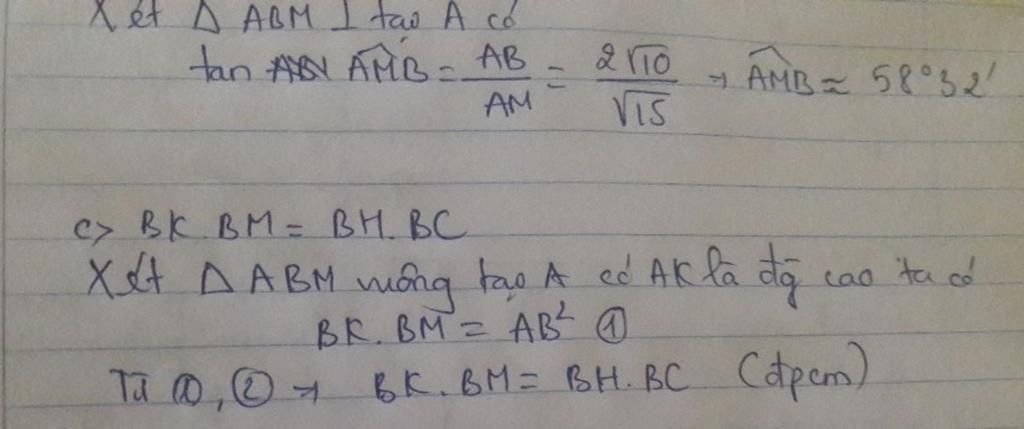 Xét Δ ABM ⊥ tại A có
tan AMB = AB/AM = 2√10/√15 → AMB ≈ 58°32'
c> BK.BM = BH.BC
Xét Δ ABM vuông tại A có AK là đg cao ta có
BK.BM = AB² ①
Từ ①, ② → BK.BM = BH.BC (đpcm)